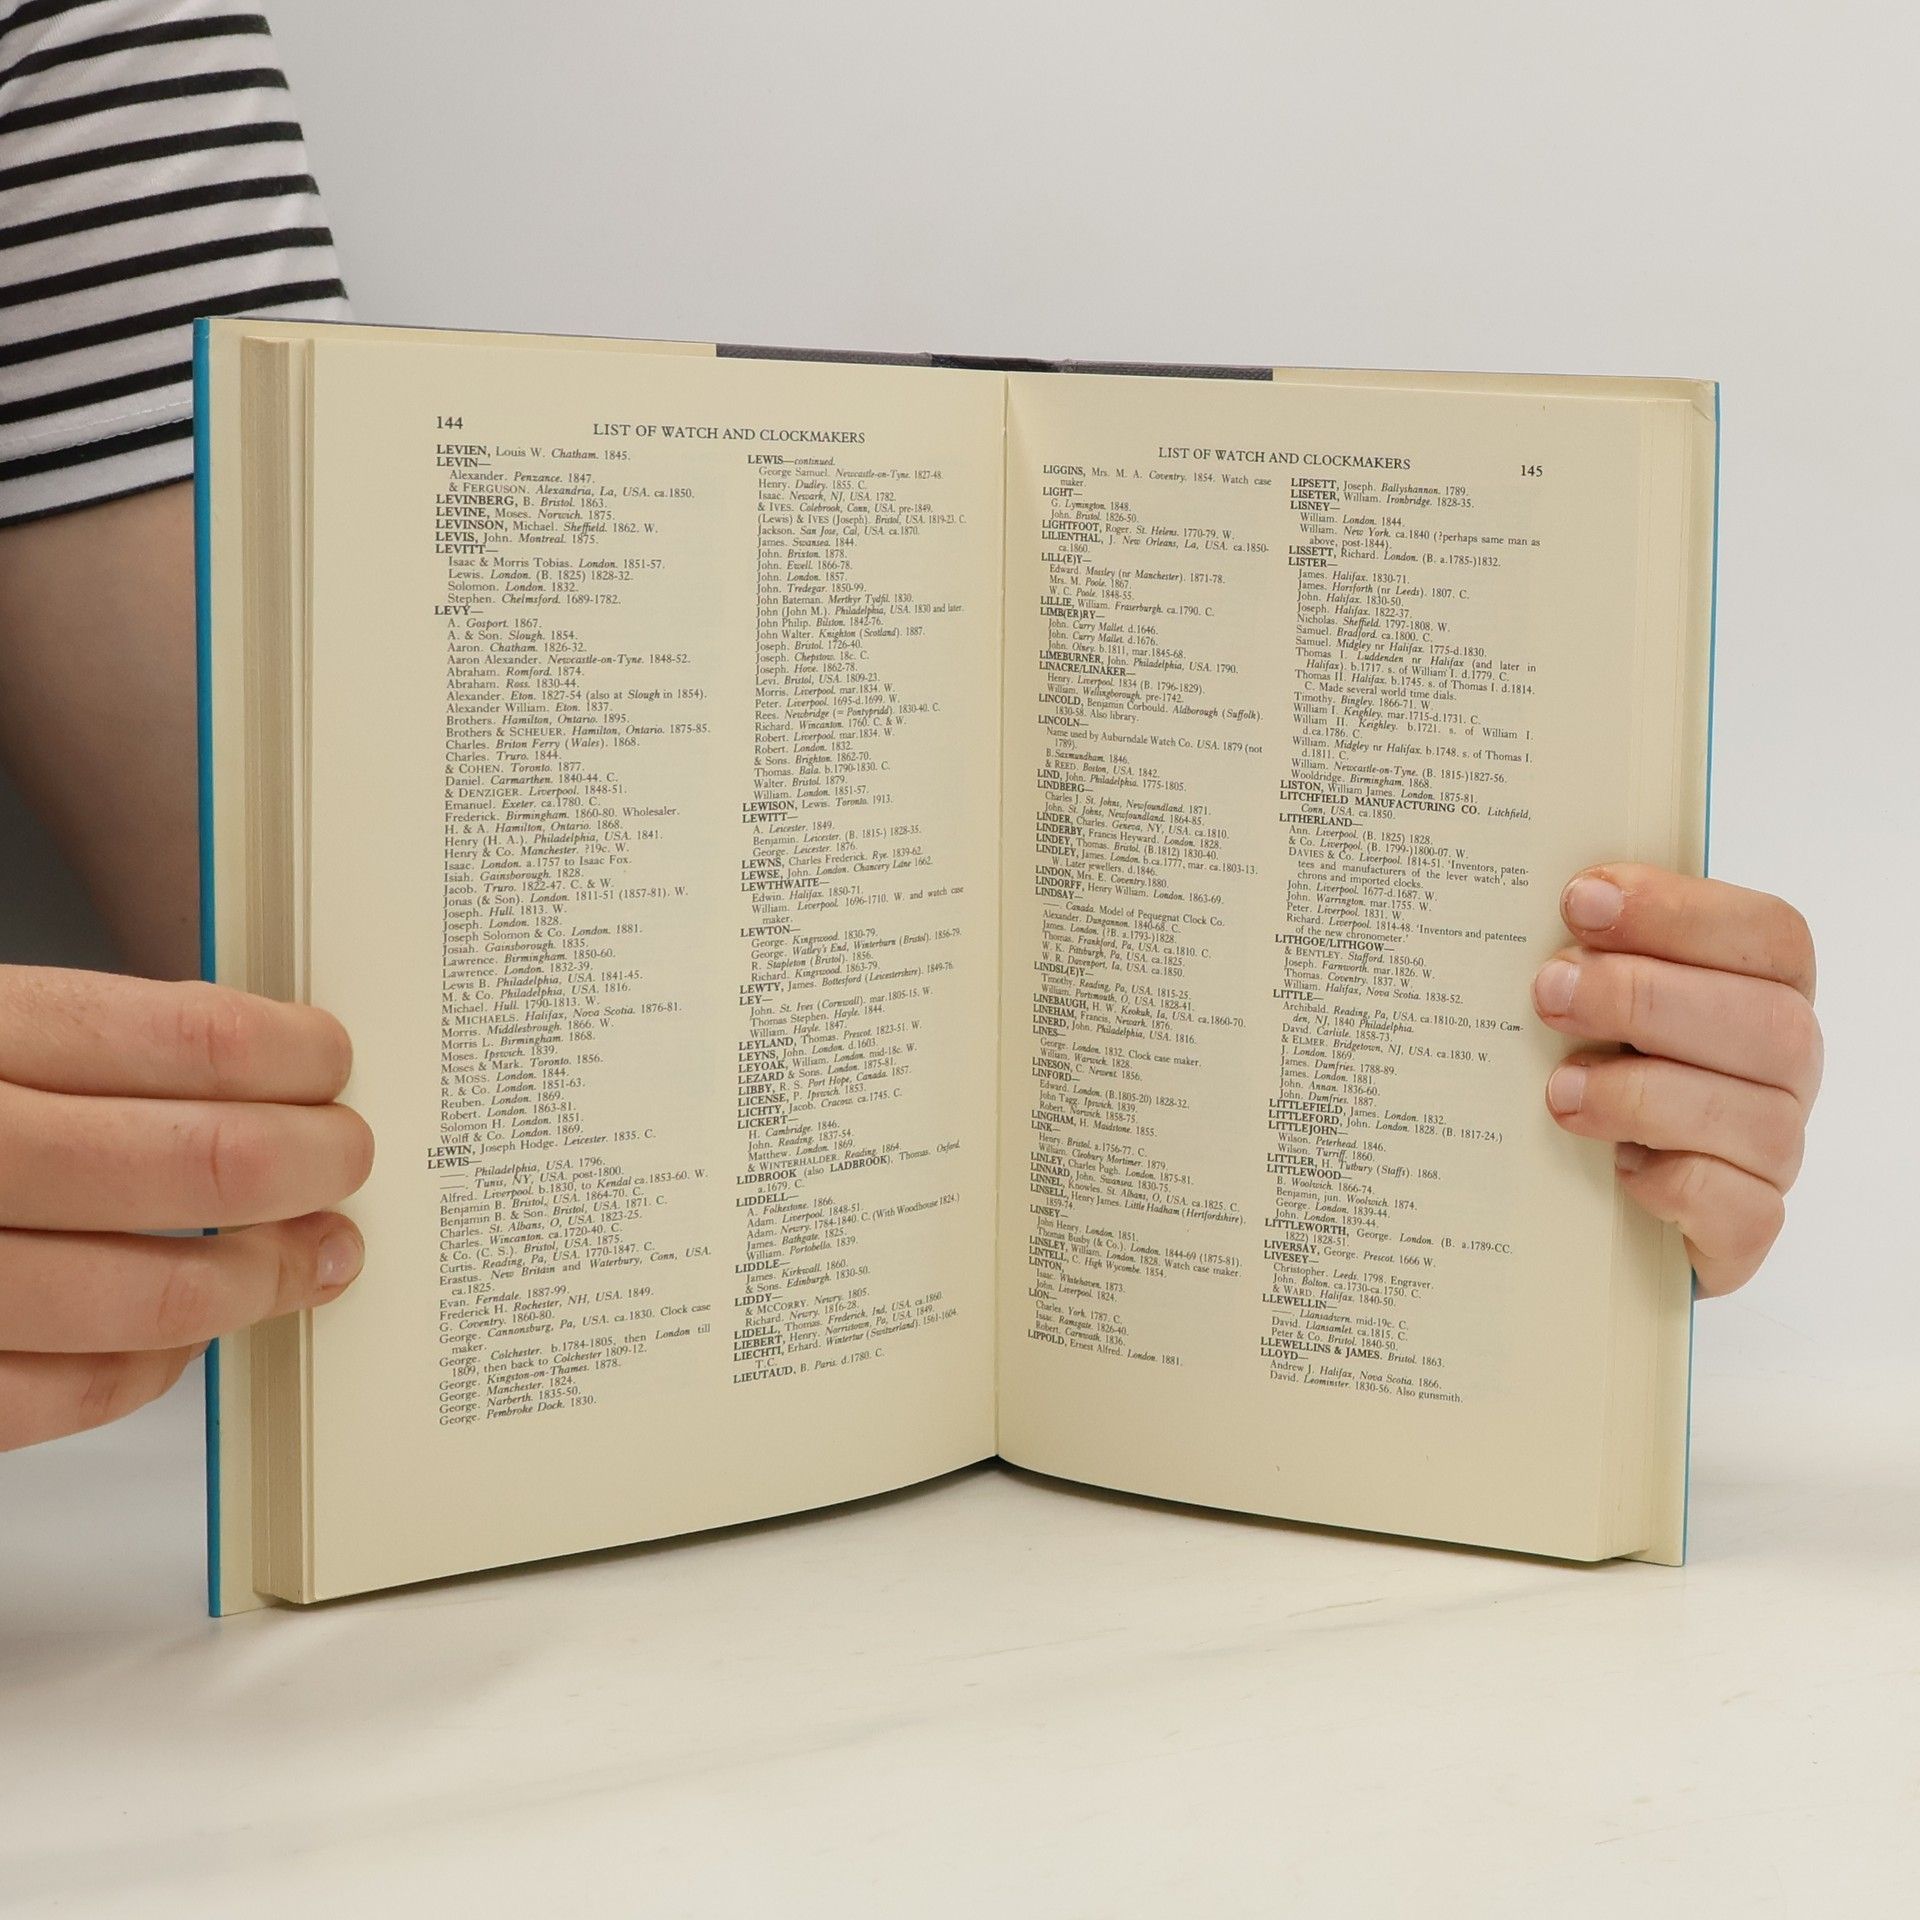 144
LIST OF WATCH AND CLOCKMAKERS
LEVIEN, Louis W. Chatham. 1845.
LEVIN—
Alexander. Penzance. 1847.
& FERGUSON. Alexandria, La, USA. ca.1850.
LEVINBERG, B. Bristol. 1863.
LEVINE, Moses. Norwich. 1875.
LEVINSON, Michael. Sheffield. 1862. W.
LEVIS, John. Montreal. 1875.
LEVITT—
Isaac & Morris Tobias. London. 1851-57.
Lewis. London. (B. 1825) 1828-32.
Solomon. London. 1832.
Stephen. Chelmsford. 1689-1782.
LEVY—
A. Gosport. 1867.
A. & Son. Slough. 1854.
Aaron. Chatham. 1826-32.
Aaron Alexander. Newcastle-on-Tyne. 1848-52.
Abraham. Romford. 1874.
Abraham. Ross. 1830-44.
Alexander. Eton. 1827-54 (also at Slough in 1854).
Alexander William. Eton. 1837.
Brothers. Hamilton, Ontario. 1895.
Brothers & SCHEUER. Hamilton, Ontario. 1875-85.
Charles. Briton Ferry (Wales). 1868.
Charles. Truro. 1844.
& COHEN. Toronto. 1877.
Daniel. Carmarthen. 1840-44. C.
& DENZIGER. Liverpool. 1848-51.
Emanuel. Exeter. ca.1780. C.
Frederick. Birmingham. 1860-80. Wholesaler.
H. & A. Hamilton, Ontario. 1868.
Henry (H. A.). Philadelphia, USA. 1841.
Henry & Co. Manchester. ?19c. W.
Isaac. London. a.1757 to Isaac Fox.
Isiah. Gainsborough. 1828.
Jacob. Truro. 1822-47. C. & W.
Jonas (& Son). London. 1811-51 (1857-81). W.
Joseph. Hull. 1813. W.
Joseph. London. 1828.
Joseph Solomon & Co. London. 1881.
Josiah. Gainsborough. 1835.
Lawrence. Birmingham. 1850-60.
Lawrence. London. 1832-39.
Lewis B. Philadelphia, USA. 1841-45.
M. & Co. Philadelphia, USA. 1816.
Michael. Hull. 1790-1813. W.
& MICHAELS. Halifax, Nova Scotia. 1876-81.
Morris. Middlesbrough. 1866. W.
Morris L. Birmingham. 1868.
Moses. Ipswich. 1839.
Moses & Mark. Toronto. 1856.
& MOSS. London. 1844.
R. & Co. London. 1851-63.
Reuben. London. 1869.
Robert. London. 1863-81.
Solomon H. London. 1851.
Wolff & Co. London. 1869.
LEWIN, Joseph Hodge. Leicester. 1835. C.
LEWIS—
——. Philadelphia, USA. 1796.
——. Tunis, NY, USA. post-1800.
Alfred. Liverpool. b.1830, to Kendal ca.1853-60. W.
Benjamin B. Bristol, USA. 1864-70. C.
Benjamin B. & Son. Bristol, USA. 1871. C.
Charles. St. Albans, O, USA. 1823-25.
Charles. Wincanton. ca.1720-40. C.
& Co. (C. S.). Bristol, USA. 1875.
Curtis. Reading, Pa, USA. 1770-1847. C.
Erastus. New Britain and Waterbury, Conn, USA.
ca.1825.
Evan. Ferndale. 1887-99.
Frederick H. Rochester, NH, USA. 1849.
G. Coventry. 1860-80.
George. Cannonsburg, Pa, USA. ca.1830. Clock case
maker.
George. Colchester. b.1784-1805, then London till
1809, then back to Colchester 1809-12.
George. Kingston-on-Thames. 1878.
George. Manchester. 1824.
George. Narberth. 1835-50.
George. Pembroke Dock. 1830.
LEWIS—continued.
George Samuel. Newcastle-on-Tyne. 1827-48.
Henry. Dudley. 1855. C.
Isaac. Newark, NJ, USA. 1782.
& IVES. Colebrook, Conn, USA. pre-1849.
(Lewis) & IVES (Joseph). Bristol, USA. 1819-23. C.
Jackson. San Jose, Cal, USA. ca.1870.
James. Swansea. 1844.
John. Brixton. 1878.
John. Ewell. 1866-78.
John. London. 1857.
John. Tredegar. 1850-99.
John Bateman. Merthyr Tydfil. 1830.
John (John M.). Philadelphia, USA. 1830 and later.
John Philip. Bilston. 1842-76.
John Walter. Knighton (Scotland). 1887.
Joseph. Bristol. 1726-40.
Joseph. Chepstow. 18c. C.
Joseph. Hove. 1862-78.
Levi. Bristol, USA. 1809-23.
Morris. Liverpool. mar.1834. W.
Peter. Liverpool. 1695-d.1699. W.
Rees. Newbridge (= Pontypridd). 1830-40. C.
Richard. Wincanton. 1760. C. & W.
Robert. Liverpool. mar.1834. W.
Robert. London. 1832.
& Sons. Brighton. 1862-70.
Thomas. Bala. b.1790-1830. C.
Walter. Bristol. 1879.
William. London. 1851-57.
LEWISON, Lewis. Toronto. 1913.
LEWITT—
A. Leicester. 1849.
Benjamin. Leicester. (B. 1815-) 1828-35.
George. Leicester. 1876.
LEWNS, Charles Frederick. Rye. 1839-62.
LEWSE, John. London. Chancery Lane 1662.
LEWTHWAITE—
Edwin. Halifax. 1850-71.
William. Liverpool. 1696-1710. W. and watch case
maker.
LEWTON—
George. Kingswood. 1830-79.
George. Watley's End, Winterburn (Bristol). 1856-79.
R. Stapleton (Bristol). 1856.
Richard. Kingswood. 1863-79.
LEWTY, James. Bottesford (Leicestershire). 1849-76.
LEY—
John. St. Ives (Cornwall). mar.1805-15. W.
Thomas Stephen. Hayle. 1844.
William. Hayle. 1847.
LEYLAND, Thomas. Prescot. 1823-51. W.
LEYNS, John. London. d.1603.
LEYOAK, William. London. mid-18c. W.
LEZARD & Sons. London. 1875-81.
LIBBY, R. S. Port Hope, Canada. 1857.
LICENSE, P. Ipswich. 1853.
LICHTY, Jacob. Cracow. ca.1745. C.
LICKERT—
H. Cambridge. 1846.
John. Reading. 1837-54.
Matthew. London. 1869.
& WINTERHALDER. Reading. 1864.
LIDBROOK (also LADBROOK). Thomas. Oxford.
a.1679. C.
LIDDELL—
A. Folkestone. 1866.
Adam. Liverpool. 1848-51.
Adam. Newry. 1784-1840. C. (With Woodhouse 1824.)
James. Bathgate. 1825.
William. Portobello. 1839.
LIDDLE—
James. Kirkwall. 1860.
& Sons. Edinburgh. 1830-50.
LIDDY—
& McCORRY. Newry. 1805.
Richard. Newry. 1816-28.
LIDELL, Thomas. Frederick. Ind, USA. ca.1860.
LIEBERT, Henry. Norristown, Pa, USA. 1849.
LIECHTI, Erhard. Wintertur (Switzerland). 1561-1604.
T.C.
LIEUTAUD, B. Paris. d.1780. C.
LIST OF WATCH AND CLOCKMAKERS
145
LIGGINS, Mrs. M. A. Coventry. 1854. Watch case
maker.
LIGHT—
G. Lymington. 1848.
John. Bristol. 1826-50.
LIGHTFOOT, Roger. St. Helens. 1770-79. W.
LILIENTHAL, J. New Orleans, La, USA. ca.1850-
ca.1860.
LILL(E)Y—
Edward. Mossley (nr Manchester). 1871-78.
Mrs. M. Poole. 1867.
W. C. Poole. 1848-55.
LILLIE, William. Fraserburgh. ca.1790. C.
LIMB(ER)RY—
John. Curry Mallet. d.1646.
John. Curry Mallet. d.1676.
John. Olney. b.1811, mar.1845-68.
LIMEBURNER, John. Philadelphia, USA. 1790.
LINACRE/LINAKER—
Henry. Liverpool. 1834 (B. 1796-1829).
William. Wellingborough. pre-1742.
LINCOLD, Benjamin Corbould. Aldborough (Suffolk).
1830-58. Also library.
LINCOLN—
Name used by Auburndale Watch Co. USA. 1879 (not
1789).
B. Saxmundham. 1846.
& REED. Boston, USA. 1842.
LIND, John. Philadelphia. 1775-1805.
LINDBERG—
Charles J. St. Johns, Newfoundland. 1871.
John. St. Johns, Newfoundland. 1864-85.
LINDER, Charles. Geneva, NY, USA. ca.1810.
LINDERBY, Francis Heyward. London. 1828.
LINDEY, Thomas. Bristol. (B.1812) 1830-40.
LINDLEY, James. London. b.ca.1777, mar. ca.1803-13.
W. Later jewellers. d.1846.
LINDON, Mrs. E. Coventry.1880.
LINDORFF, Henry William. London. 1863-69.
LINDSAY—
——. Canada. Model of Pequegnat Clock Co.
Alexander. Dungannon. 1840-68. C.
James. London. (?B. a.1793-)1828.
Thomas. Frankford, Pa, USA. ca.1810. C.
W. K. Pittsburgh, Pa, USA. ca.1825.
W. R. Davenport, Ia, USA. ca.1850.
LINDSL(E)Y—
Timothy. Reading, Pa, USA. 1815-25.
William. Portsmouth, O, USA. 1828-41.
LINEBAUGH, H. W. Keokuk, Ia, USA. ca.1860-70.
LINEHAM, Francis. Newark. 1876.
LINERD, John. Philadelphia, USA. 1816.
LINES—
George. London. 1832. Clock case maker.
William. Warwick. 1828.
LINESON, C. Newent. 1856.
LINFORD—
Edward. London. (B.1805-20) 1828-32.
John Tagg. Ipswich. 1839.
Robert. Norwich. 1858-75.
LINGHAM, H. Maidstone. 1855.
LINK—
Henry. Bristol. a.1756-77. C.
William. Cleobury Mortimer. 1879.
LINLEY, Charles Pugh. London. 1875-81.
LINNARD, John. Swansea. 1830-75.
LINNEL, Knowles. St. Albans, O, USA. ca.1825. C.
LINSELL, Henry James. Little Hadham (Hertfordshire).
1859-74.
LINSEY—
John Henry. London. 1851.
Thomas Busby (& Co.). London. 1844-69 (1875-81).
LINSLEY, William. London. 1828. Watch case maker.
LINTELL, C. High Wycombe. 1854.
LINTON,
Isaac. Whitehaven. 1873.
John. Liverpool. 1824.
LION—
Charles. York. 1787. C.
Isaac. Ramsgate. 1826-40.
Robert. Carnwath. 1836.
LIPPOLD, Ernest Alfred. London. 1881.
LIPSETT, Joseph. Ballyshannon. 1789.
LISETER, William. Ironbridge. 1828-35.
LISNEY—
William. London. 1844.
William. New York. ca.1840 (?perhaps same man as
above, post-1844).
LISSETT, Richard. London. (B. a.1785-)1832.
LISTER—
James. Halifax. 1830-71.
James. Horsforth (nr Leeds). 1807. C.
John. Halifax. 1830-50.
Joseph. Halifax. 1822-37.
Nicholas. Sheffield. 1797-1808. W.
Samuel. Bradford. ca.1800. C.
Samuel. Midgley nr Halifax. 1775-d.1830.
Thomas I. Luddenden nr Halifax (and later in
Halifax). b.1717. s. of William I. d.1779. C.
Thomas II. Halifax. b.1745. s. of Thomas I. d.1814.
C. Made several world time dials.
Timothy. Bingley. 1866-71. W.
William I. Keighley. mar.1715-d.1731. C.
William II. Keighley. b.1721. s. of William I.
d.ca.1786. C.
William. Midgley nr Halifax. b.1748. s. of Thomas I.
d.1811. C.
William. Newcastle-on-Tyne. (B. 1815-)1827-56.
Wooldridge. Birmingham. 1868.
LISTON, William James. London. 1875-81.
LITCHFIELD MANUFACTURING CO. Litchfield,
Conn, USA. ca.1850.
LITHERLAND—
Ann. Liverpool. (B. 1825) 1828.
& Co. Liverpool. (B. 1799-)1800-07. W.
DAVIES & Co. Liverpool. 1814-51. 'Inventors, paten-
tees and manufacturers of the lever watch', also
chrons and imported clocks.
John. Liverpool. 1677-d.1687. W.
John. Warrington. mar.1755. W.
Peter. Liverpool. 1831. W.
Richard. Liverpool. 1814-48. 'Inventors and patentees
of the new chronometer.'
LITHGOE/LITHGOW—
& BENTLEY. Stafford. 1850-60.
Joseph. Farnworth. mar.1826. W.
Thomas. Coventry. 1837. W.
William. Halifax, Nova Scotia. 1838-52.
LITTLE—
Archibald. Reading, Pa, USA. ca.1810-20, 1839 Cam-
den, NJ, 1840 Philadelphia.
David. Carlisle. 1858-73.
& ELMER. Bridgetown, NJ, USA. ca.1830. W.
J. London. 1869.
James. Dumfries. 1788-89.
James. London. 1881.
John. Annan. 1836-60.
John. Dumfries. 1887.
LITTLEFIELD, James. London. 1832.
LITTLEFORD, John. London. 1828. (B. 1817-24.)
LITTLEJOHN—
Wilson. Peterhead. 1846.
Wilson. Turriff. 1860.
LITTLER, H. Tutbury (Staffs). 1868.
LITTLEWOOD—
B. Woolwich. 1866-74.
Benjamin, jun. Woolwich. 1874.
George. London. 1839-44.
John. London. 1839-44.
LITTLEWORTH, George. London. (B. a.1789-CC.
1822) 1828-51.
LIVERSAY, George. Prescot. 1666 W.
LIVESEY—
Christopher. Leeds. 1798. Engraver.
John. Bolton. ca.1730-ca.1750. C.
& WARD. Halifax. 1840-50.
LLEWELLIN—
——. Llansadwrn. mid-19c. C.
David. Llansamlet. ca.1815. C.
Peter & Co. Bristol. 1840-50.
LLEWELLINS & JAMES. Bristol. 1863.
LLOYD—
Andrew J. Halifax, Nova Scotia. 1866.
David. Leominster. 1830-56. Also gunsmith.